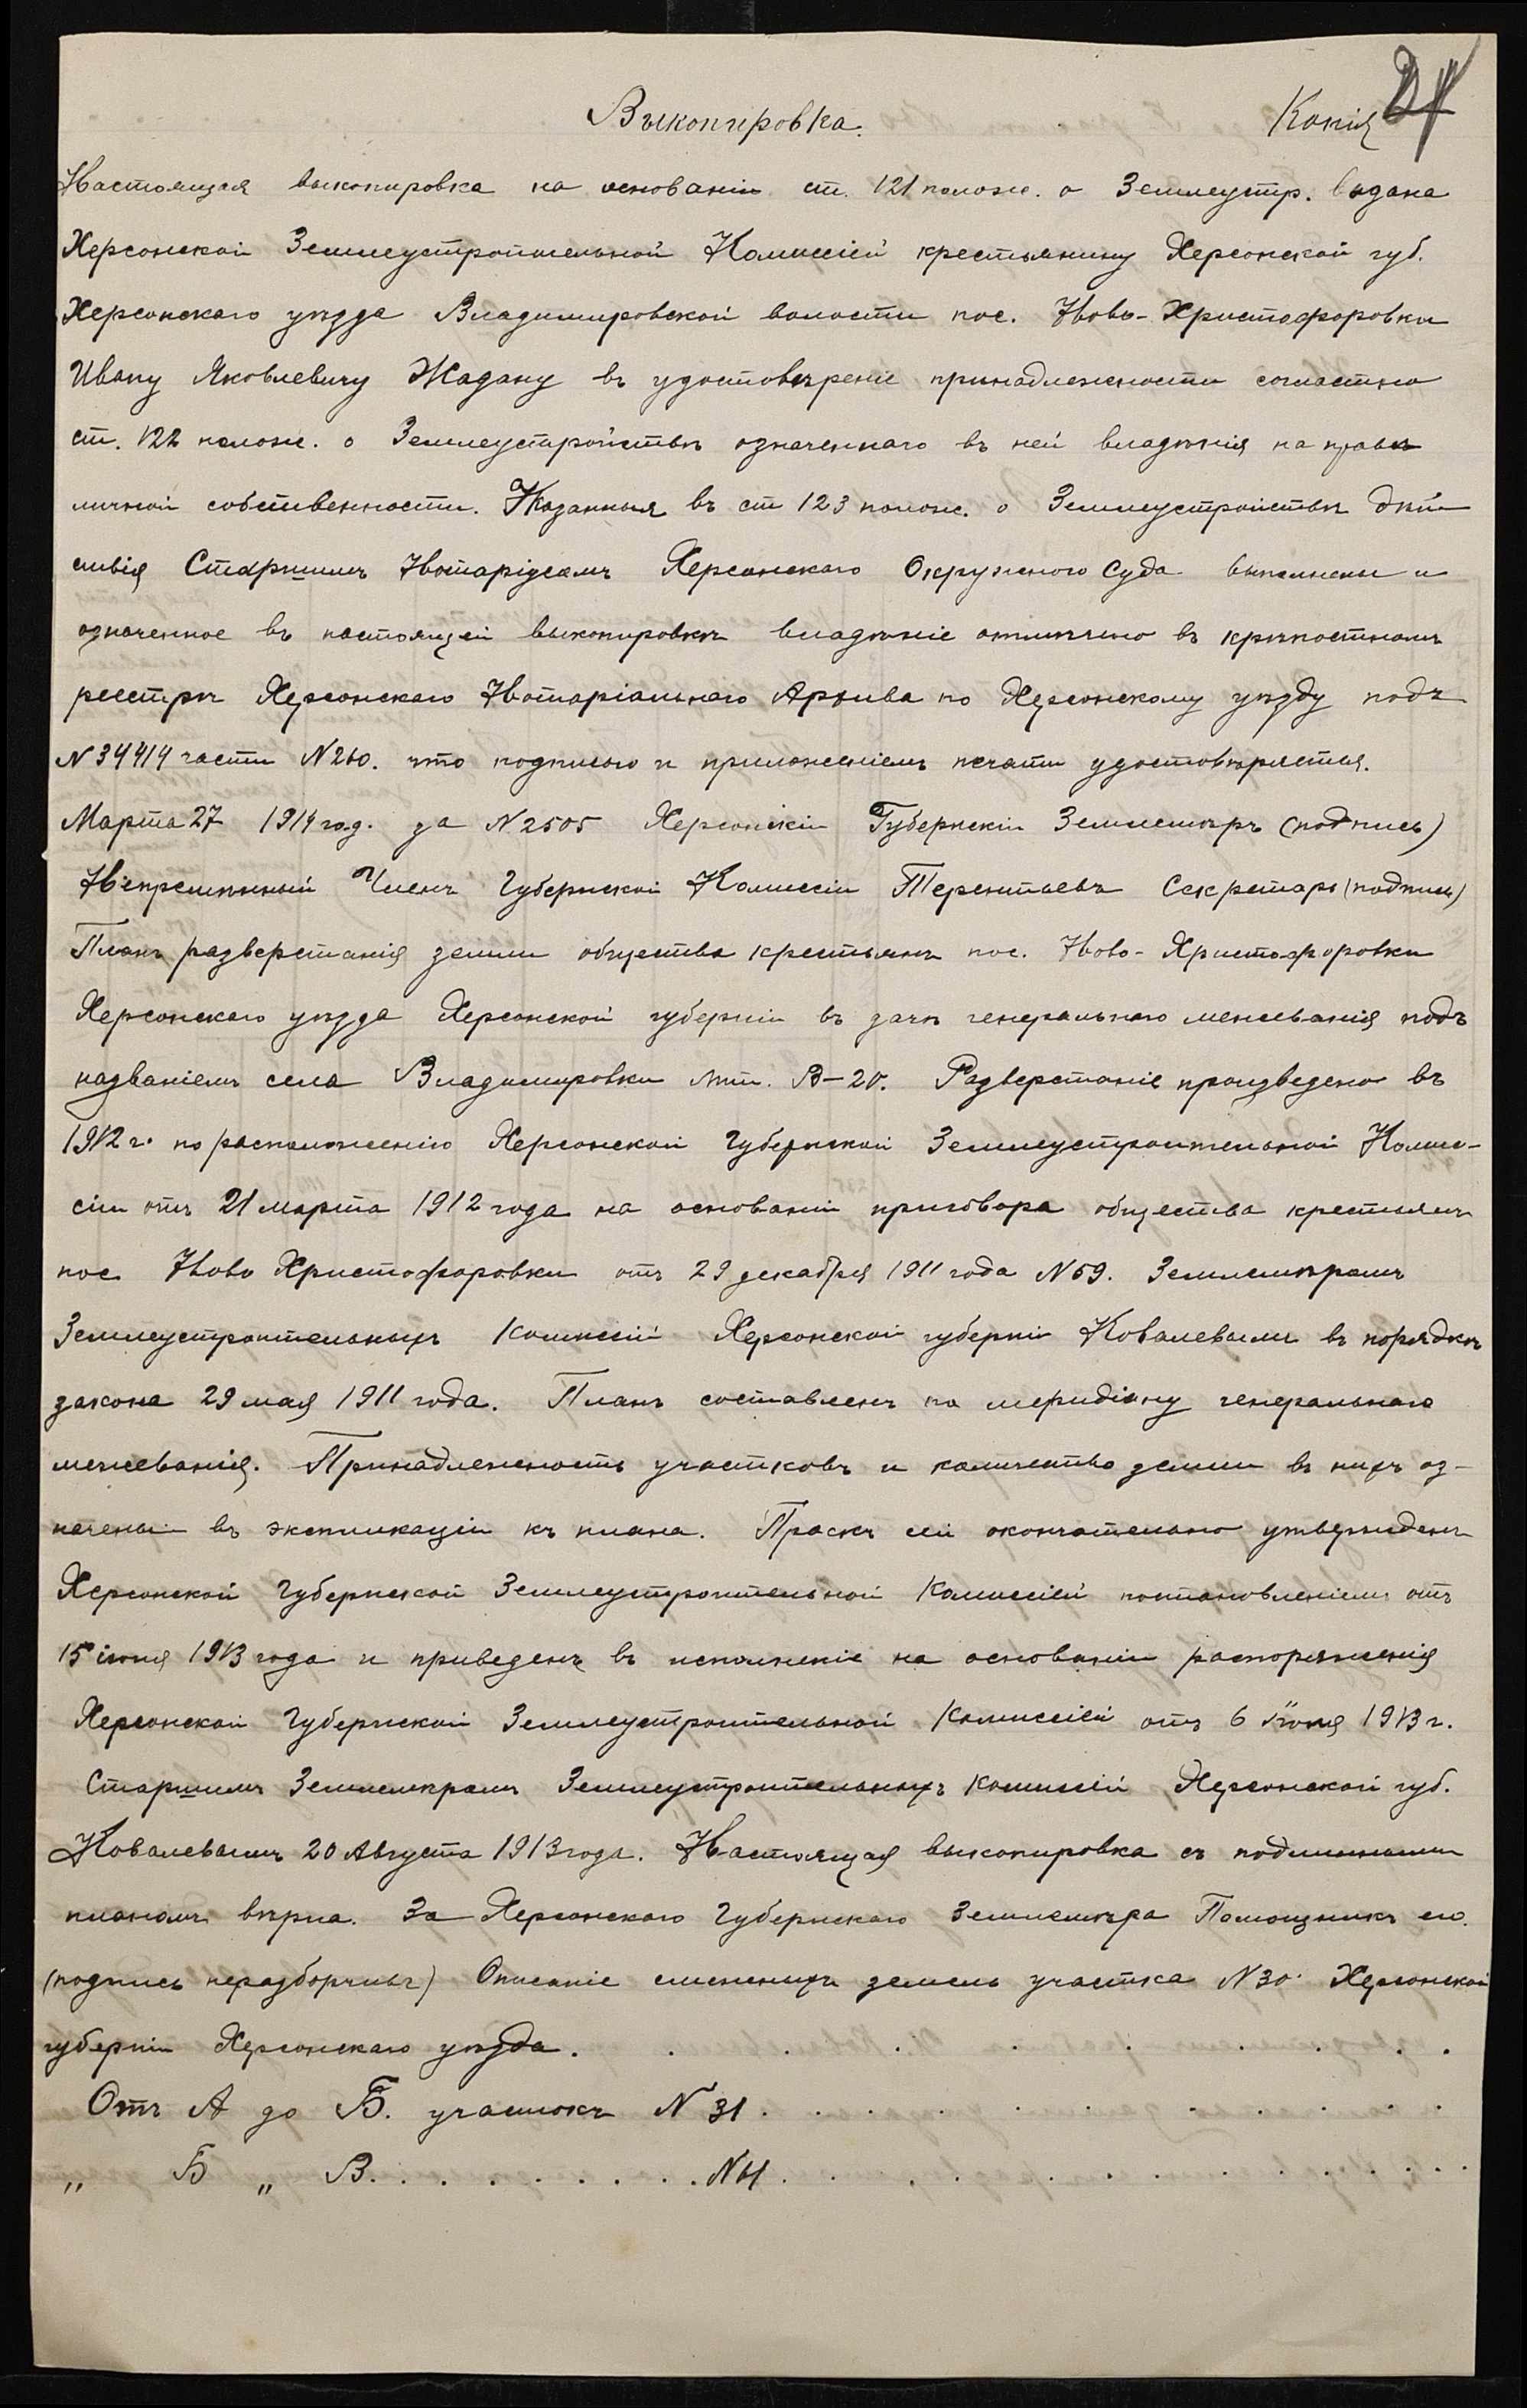 Выкопировка.
Копія
Настоящая выкопировка на основаніи ст. 121 полож. о Землеустр. выдана
Херсонской Землеустроительной Комиссіей крестьянину Херсонской губ.
Херсонскаго уѣзда Владимировской волости пос. Ново-Христофоровки
Ивану Яковлевичу Жадану въ удостовѣреніе принадлежности согластно
ст. 122 полож. о Землеустройствѣ означеннаго въ ней владѣнія на правѣ
личной собственности. Указанныя въ ст 123 полож. о Землеустройствѣ дѣй
ствія Старшимъ Нотаріусомъ Херсонскаго Окружного Суда выполнены и
означенное въ настоящей выкопировкѣ владѣніе отмѣчено въ крѣпостномъ
реестрѣ Херсонскаго Нотаріальнаго Архива по Херсонскому уѣзду подъ
N 34414 части N 260. что подписью и приложеніемъ печати удостовѣряется.
Марта 27 1914 год. за N 2505 Херсонскій Губернскій Землемѣръ (подпись)
Непремѣнный Членъ Губернской Комиссіи Терентьевъ Секретарь (подпись)
Планъ разверстанія земли общества крестьянъ пос. Ново-Христофоровки
Херсонскаго уѣзда Херсонской губерніи въ дачѣ генеральнаго межеванія подъ
названіемъ села Владимировки Лит. В-20. Разверстаніе произведено въ
1912 г. по распоженію Херсонской Губернской Землеустроительной Комис-
сіи отъ 21 марта 1912 года на основаніи приговора общества крестьянъ
пос. Ново Христофоровки отъ 29 декабря 1911 года N 59. Землемѣромъ
Землеустроительныхъ Комиссій Херсонской губерніи Ковалевымъ въ порядкѣ
закона 29 мая 1911 года. Планъ составленъ по меридіану генеральнаго
межеванія. Принадлежность участковъ и количество земли въ нихъ оз-
начены въ экспликаціи къ плана. Проэкъ сей окончательно утвержденъ
Херсонской Губернской Землеустроительной Комиссіей постановленіемъ отъ
15 іюня 1913 года и приведенъ въ исполненіе на основаніи распоряженія
Херсонской Губернской Землеустроительной Комиссіей отъ 6 1913 г.
Старшимъ Землемѣромъ Землеустроительныхъ Комиссій Херсонской губ.
Ковалевымъ 20 Августа 1913 года. Настоящая выкопировка съ подлиннымъ
планомъ вѣрна. За Херсонскаго Губернскаго Землемѣра Помощникъ его.
(подпись неразборчива) Описаніе смежныхъ земель участка N 30. Херсонской
губерніи Херсонскаго уѣзда. . . . . . . . .
Отъ А до Б. участокъ N 31. . . . . . . . .
" Б " В. . . . . . . . . . . . . . . . . . .